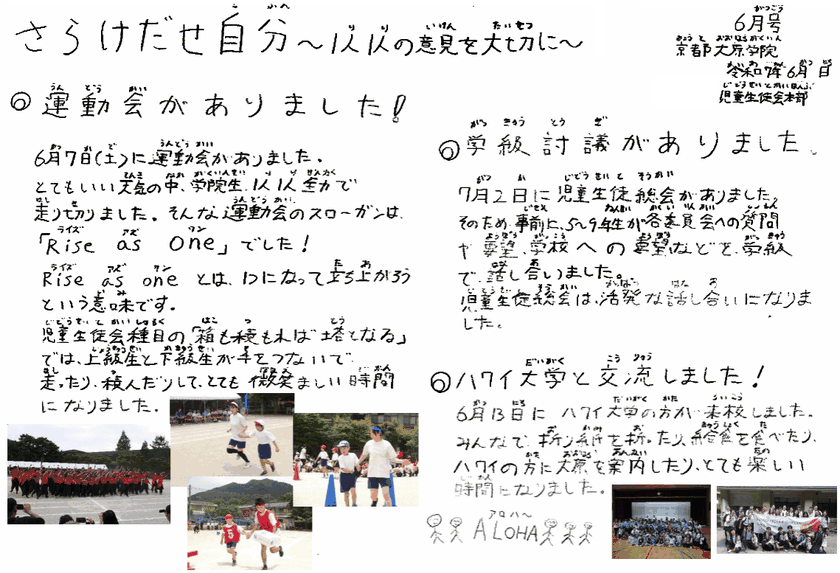 さらけだせ自分～1人1人の意見を大切に～
6月号
京都大原学院
令和7年6月 日
児童生徒会本部
◎運動会がありました！
6月7日(土)に運動会がありました。
とてもいい天気の中、学院生、1人1人全力で
走り切りました。そんな運動会のスローガンは、
ライズ アズ ワン
「Rise as One」でした！
ライズ アズ ワン
Rise as one とは、1つになって立ち上がろう
という意味です。
児童生徒会種目の「箱も積もれば塔となる」
では、上級生と下級生が手をつないで
走ったり、積んだりして、とても微笑ましい時間
になりました。
◎学級討議がありました。
7月2日に児童生徒総会がありました。
そのため、事前に、5～9年生が各委員会への質問
や要望、学校への要望などを、学級
で、話し合いました。
児童生徒総会は、活発な話し合いになりま
した。
◎ハワイ大学と交流しました！
6月13日に ハワイ大学の方が来校しました。
みんなで、折り紙を折ったり、給食を食べたり、
ハワイの方に大原を案内したり、とても楽しい
時間になりました。
アロハ～
ALOHA